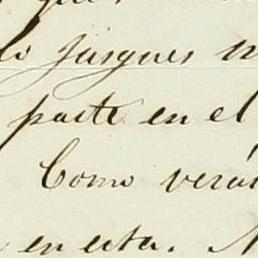 lo juzgues
parte en el
Como verá
en esta.